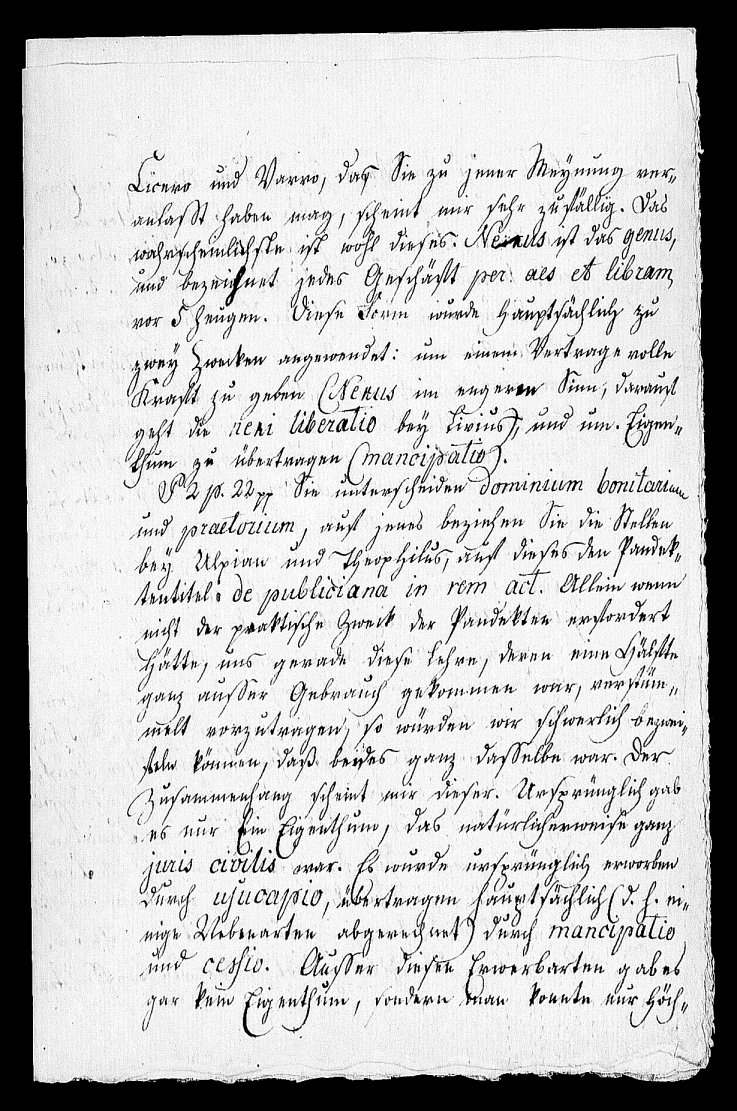 Cicero und Varro, das Sie zu jener Meynung ver-
anlaßt haben mag, scheint mir sehr zufällig. Das
wahrscheinlichste ist wohl dieses. Nexus ist das genus,
und bezeichnet jedes Geschäft per aes et libram,
vor 5 Zeugen. Diese Form wurde hauptsächlich zu
zwey Zwecken angewendet: um einem Vertrage volle
Kraft zu geben (Nexus im engeren Sinn, darauf
geht die nexi liberatio bey Livius), und um Eigen-
thum zu übertragen (mancipatio).
§ 2 p. 22 pp Sie unterscheiden dominium bonitarium
und praetorium, auf jenes beziehen Sie die Stellen
bey Ulpian und Theophilus, auf dieses den Pandek-
tentitel de publiciana in rem act. Allein wenn
nicht der praktische Zweck der Pandekten erfordert
hätte, uns gerade diese Lehre, deren eine Hälfte
ganz ausser Gebrauch gekommen war, verstüm-
melt vorzutragen, so würden wir schwerlich bezwei-
feln können, daß beides ganz dasselbe war. Der
Zusammenhang scheint mir dieser. Ursprünglich gab
es nur Ein Eigenthum, das natürlicherweise ganz
juris civilis war. Es wurde ursprünglich erworben
durch usucapio, übertragen hauptsächlich (d. h. ei-
nige Nebenarten abgerechnet) durch mancipatio
und cessio. Ausser diesen Erwerbarten gab es
gar kein Eigenthum, sondern man konnte nur höch-